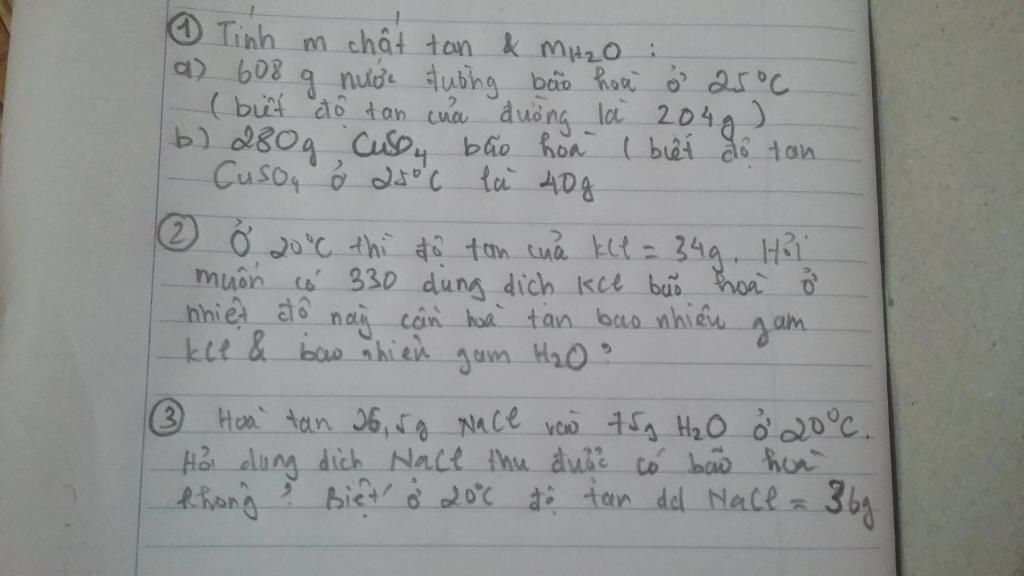 ① Tính m chất tan & mH₂O :
a) 608 g nước đường bão hoà ở 25°C
( biết độ tan của đường là 204g )
b) 280g CuSO₄ bão hoà ( biết độ tan
CuSO₄ ở 25°C là 40g
② Ở 20°C thì độ tan của KCl = 34g. Hỏi
muốn có 330 dung dịch KCl bão hoà ở
nhiệt độ này cần hoà tan bao nhiêu gam
KCl & bao nhiêu gam H₂O ?
③ Hoà tan 26,5g NaCl vào 75g H₂O ở 20°C.
Hỏi dung dịch NaCl thu được có bão hoà
không ? Biết ở 20°C độ tan dd NaCl = 36g